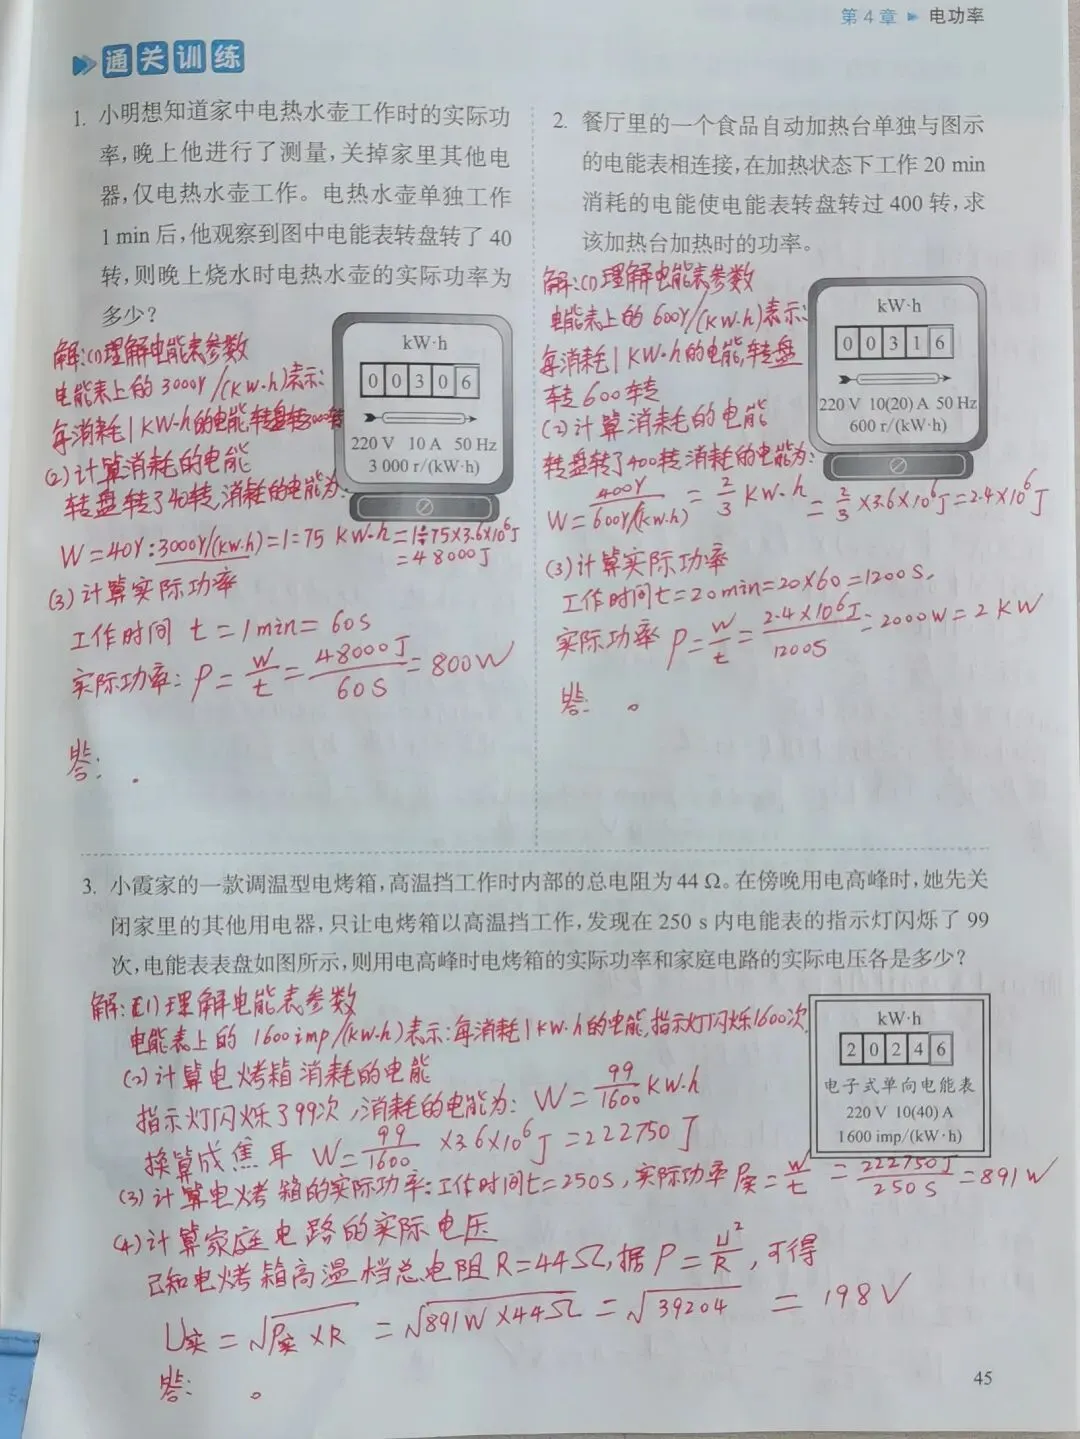 第4章 ▶ 电功率
通关训练
1. 小明想知道家中电热水壶工作时的实际功
率,晚上他进行了测量,关掉家里其他电
器,仅电热水壶工作。电热水壶单独工作
1 min 后,他观察到图中电能表转盘转了 40
转,则晚上烧水时电热水壶的实际功率为
多少?
kW·h
0 0 3 0 6
220 V 10 A 50 Hz
3 000 r/(kW·h)
解:(1)理解电能表参数
电能表上的 3000r/(KW·h)表示:
每消耗1KW·h的电能,转盘转3000转
(2)计算消耗的电能
转盘转了40转,消耗的电能为:
W=40r:3000r/(KW·h)=1÷75 KW·h=1÷75×3.6×10⁶J
=48000J
(3)计算实际功率
工作时间 t=1min=60S
实际功率:P=W/t=48000J/60S=800W
答: .
2. 餐厅里的一个食品自动加热台单独与图示
的电能表相连接,在加热状态下工作 20 min
消耗的电能使电能表转盘转过 400 转,求
该加热台加热时的功率。
kW·h
0 0 3 1 6
220 V 10(20) A 50 Hz
600 r/(kW·h)
解:(1)理解电能表参数
电能表上的 600r/(KW·h)表示:
每消耗1KW·h的电能,转盘
转600转
(2)计算消耗的电能
转盘转了400转消耗的电能为:
W=400r/600r/(KW·h)=2/3 KW·h=2/3×3.6×10⁶J=2.4×10⁶J
(3)计算实际功率
工作时间t=20min=20×60=1200S,
实际功率 P=W/t=2.4×10⁶J/1200S=2000W=2KW
答: 。
3. 小霞家的一款调温型电烤箱,高温挡工作时内部的总电阻为 44 Ω。在傍晚用电高峰时,她先关
闭家里的其他用电器,只让电烤箱以高温挡工作,发现在 250 s 内电能表的指示灯闪烁了 99
次,电能表表盘如图所示,则用电高峰时电烤箱的实际功率和家庭电路的实际电压各是多少?
kW·h
2 0 2 4 6
电子式单向电能表
220 V 10(40) A
1 600 imp/(kW·h)
解:(1)理解电能表参数
电能表上的 1600imp/(KW·h)表示:每消耗1KW·h的电能,指示灯闪烁1600次
(2)计算电烤箱消耗的电能
指示灯闪烁了99次,消耗的电能为:W=99/1600 KW·h
换算成焦耳 W=99/1600×3.6×10⁶J=222750J
(3)计算电烤箱的实际功率:工作时间t=250S,实际功率P实=W/t=222750J/250S=891W
(4)计算家庭电路的实际电压
已知电烤箱高温档总电阻R=44Ω,据P=U²/R,可得
U实=√P实×R=√891W×44Ω=√39204=198V
答: 。
45